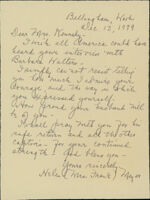 Bellingham, Wash
Dec 12, 1979
Dear Mrs. Kennedy -
I wish all America could have
heard your interview with
Barbara Walters -
I simply can not resist telling
you how much I admire your
courage and the way in which
you expressed yourself.
How proud your husband will
be of you -
I shall pray with you for his
safe return and all the other
captives - for your continued
strength! God bless you -
Yours sincerely,
Helen (Mrs. Frank)